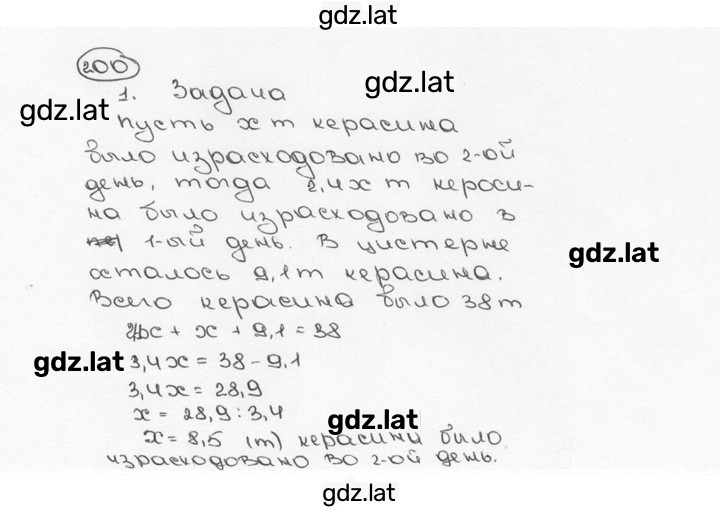 gdz.lat
200
gdz.lat
1. Задача
gdz.lat
пусть x т керасина
было израсходовано во 2-ой
день, тогда 2,4x т кероси-
на было израсходовано в
1-ый день. В цистерне
gdz.lat
осталось 9,1т керасина.
Всего керасина было 38т
2,4x + x + 9,1 = 38
gdz.lat
3,4x = 38 - 9,1
3,4x = 28,9
x = 28,9 : 3,4
gdz.lat
x = 8,5 (т) керасини было
израсходовано во 2-ой день.
gdz.lat